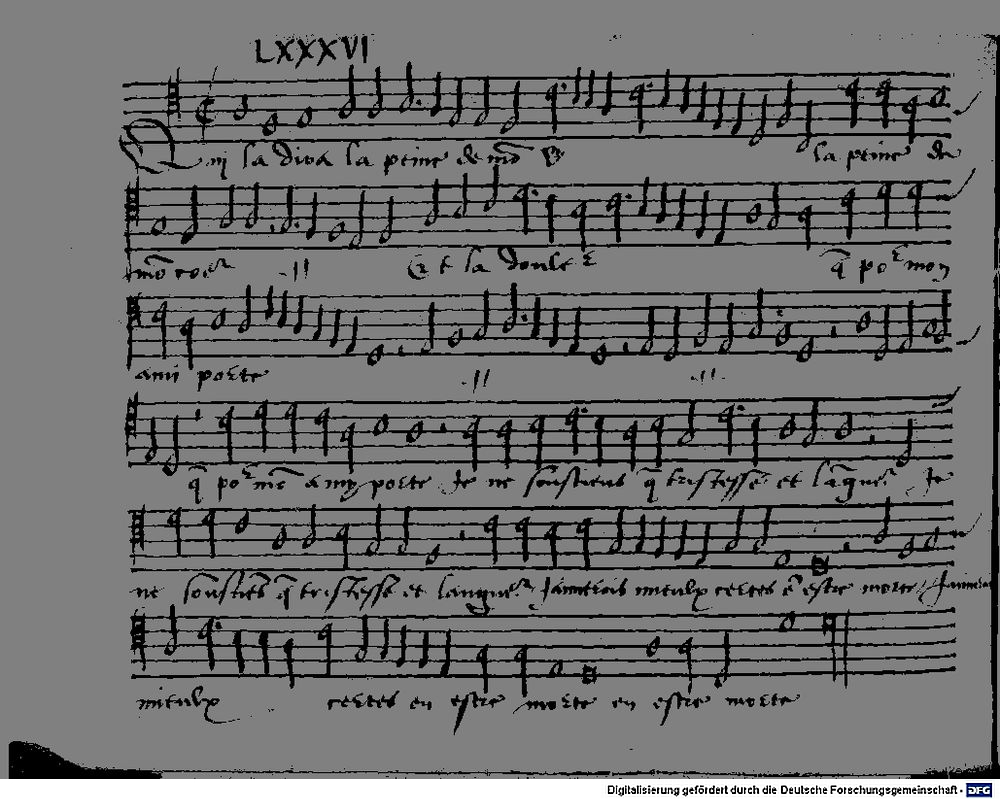 LXXXVI
Qui la dira la peine de mō la peine de
mō coer Et la doule q̄ por mon
ami porte
q̄ por mō amy porte Je ne soustiens q̄ tristesse et lāguer Je
ne soustiēs q̄ tristesse et languer Jaimerois mieulx certes ē estre morte Jaimerois
mieulx certes en estre morte en estre morte
Digitalisierung gefördert durch die Deutsche Forschungsgemeinschaft - DFG